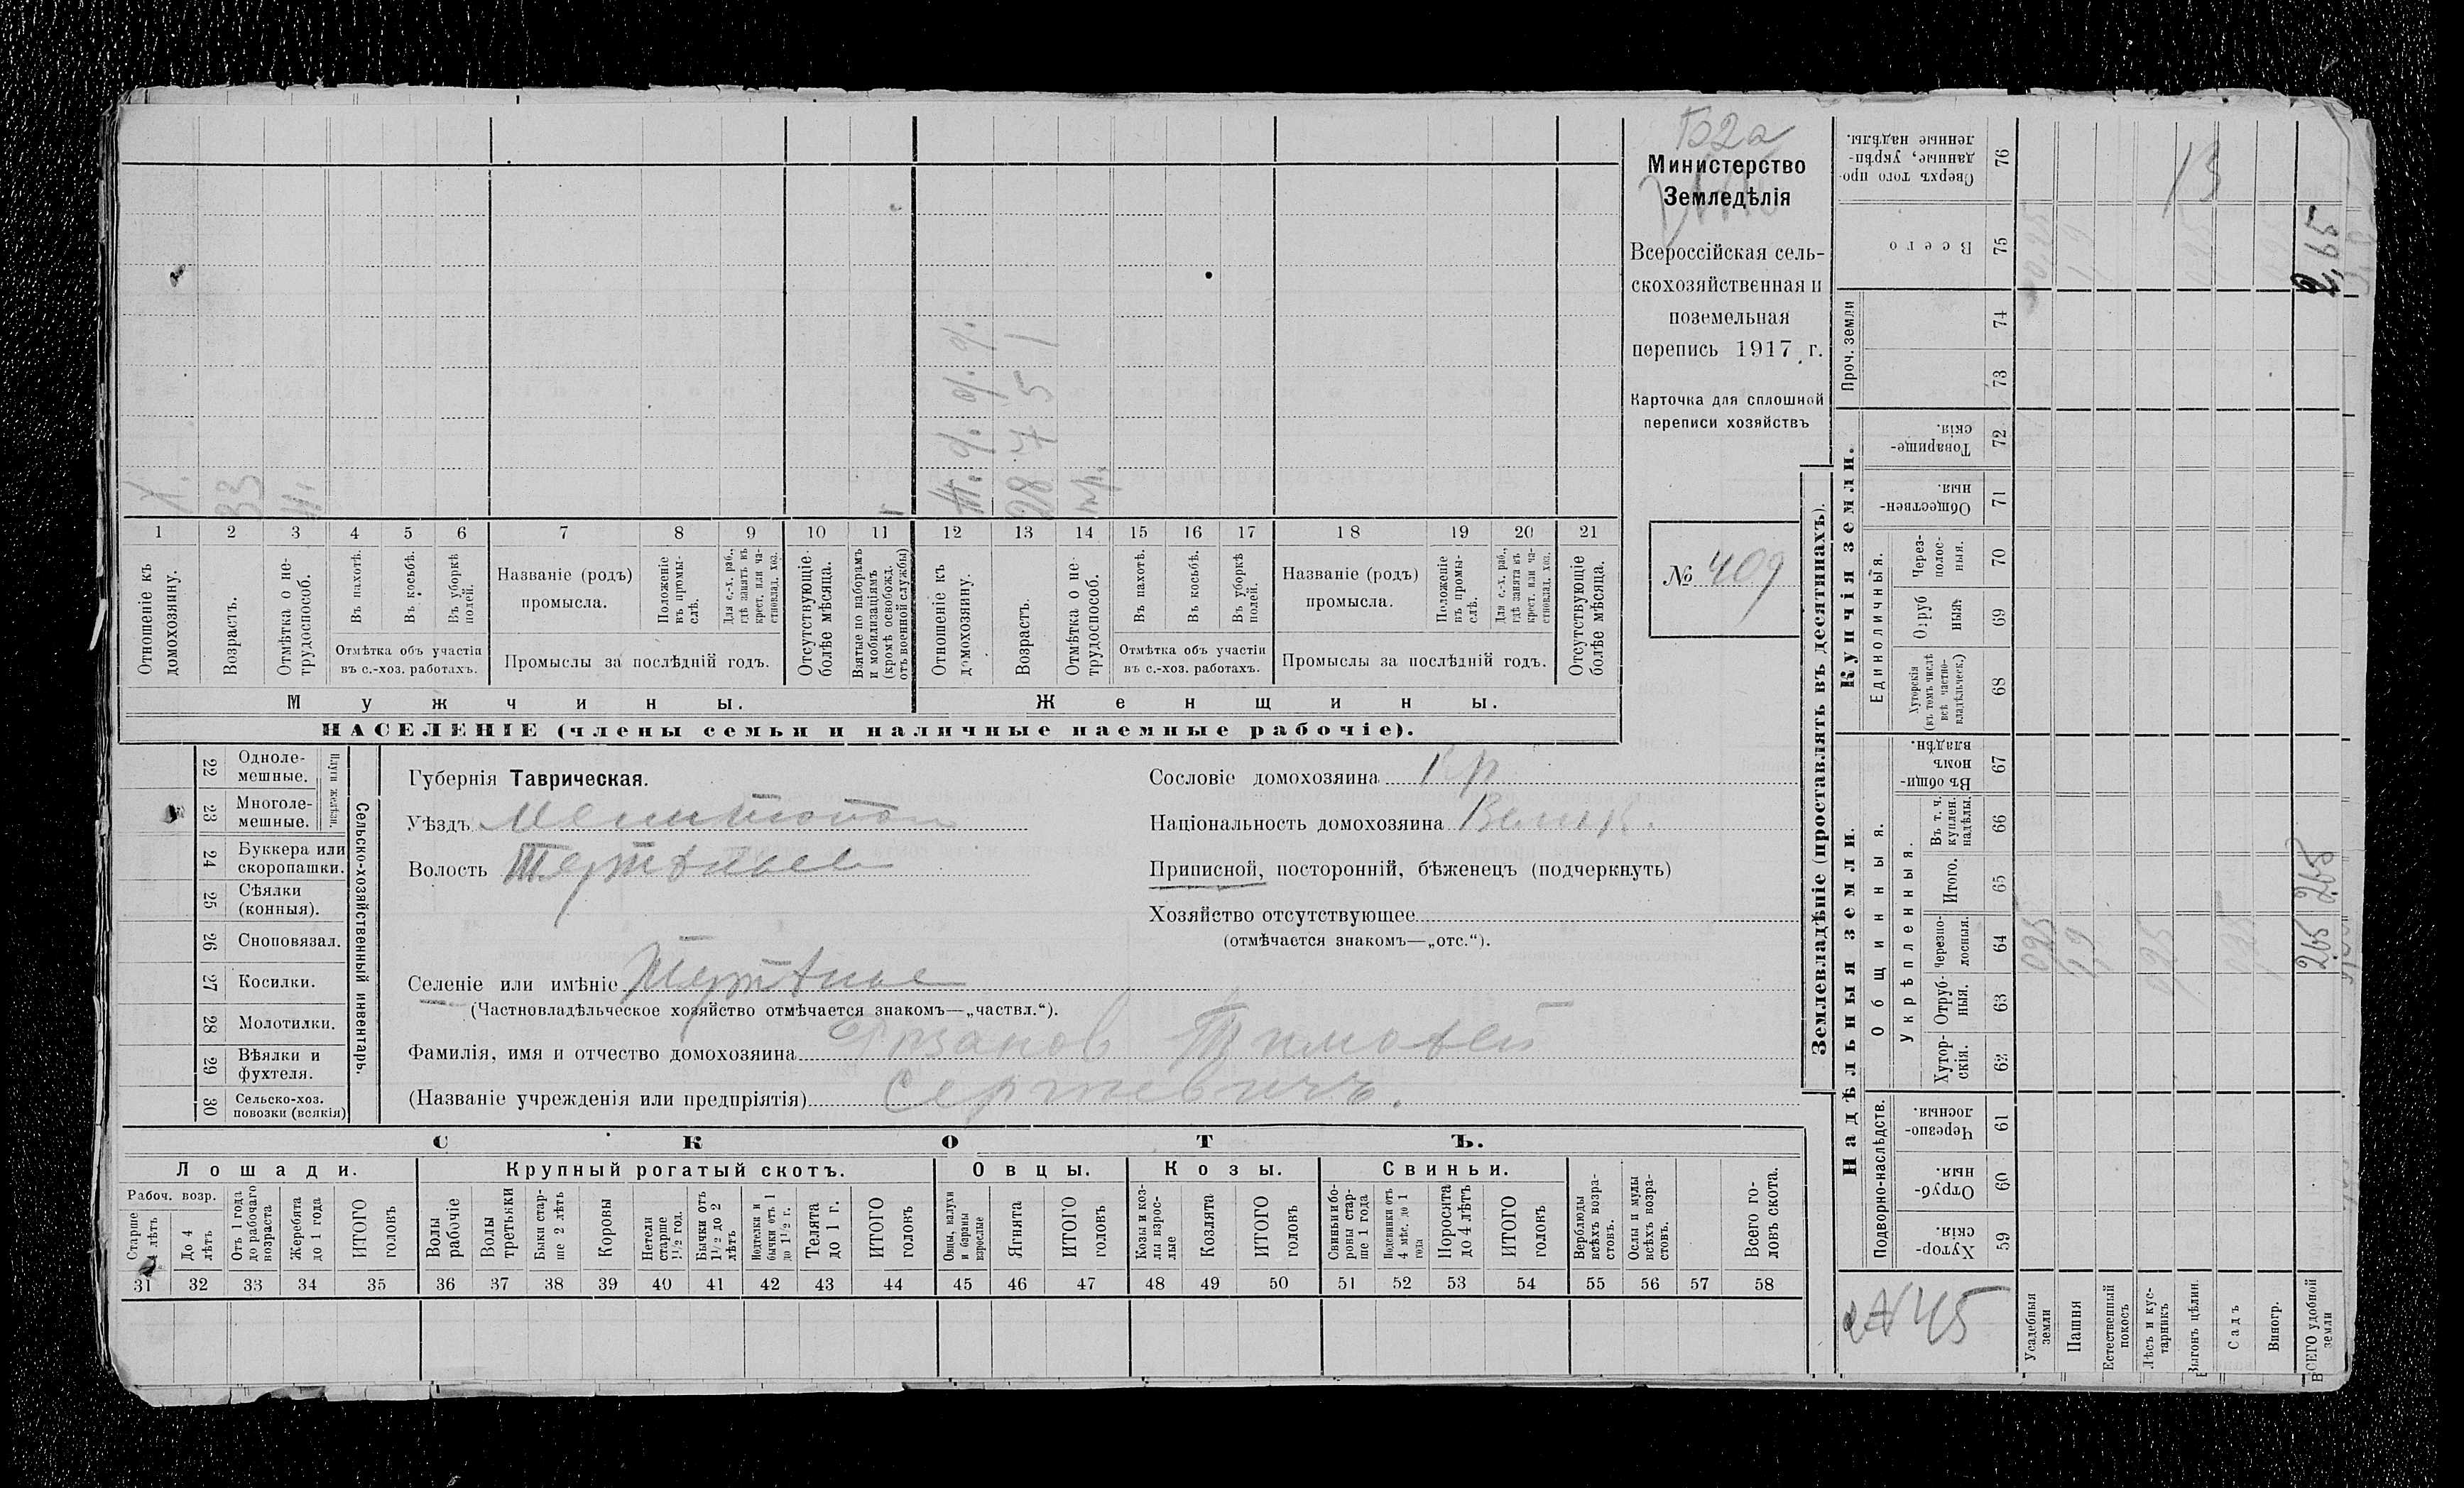 Б2а
Министерство
Земледѣлія
Всероссійская сель-
скохозяйственная и
поземельная
перепись 1917 г.
Карточка для сплошной
переписи хозяйствъ
№ 409
Х. 33
Ж. 28
д. 7
д. 5
д. 1
1 2 3 4 5 6 7 8 9 10 11 12 13 14 15 16 17 18 19 20 21
Отношеніе къ домохозяину.
Возрастъ.
Отмѣтка о не-трудоспособ.
Въ пахотѣ.
Въ косьбѣ.
Въ уборкѣ полей.
Отмѣтка объ участіи
въ с.-хоз. работахъ.
Названіе (родъ)
промысла.
Положеніе въ промы-слѣ.
Для с.-х. раб., гдѣ занятъ въ крест. или ча-стновлад. хоз.
Промыслы за послѣдній годъ.
Отсутствующіе болѣе мѣсяца.
Взятые по наборамъ и мобилизаціямъ (кромѣ освобожд. отъ военной службы)
Отношеніе къ домохозяину.
Возрастъ.
Отмѣтка о не-трудоспособ.
Въ пахотѣ.
Въ косьбѣ.
Въ уборкѣ полей.
Отмѣтка объ участіи
въ с.-хоз. работахъ.
Названіе (родъ)
промысла.
Положеніе въ промы-слѣ.
Для с.-х. раб., гдѣ занята въ крест. или ча-стновлад. хоз.
Промыслы за послѣдній годъ.
Отсутствующіе болѣе мѣсяца.
Мужчины. Женщины.
НАСЕЛЕНІЕ (члены семьи и наличные наемные рабочіе).
22 Одноле-мешные.
23 Многоле-мешные.
Плуги желѣзн.
24 Буккера или скоропашки.
25 Сѣялки (конныя).
26 Сноповязал.
27 Косилки.
28 Молотилки.
29 Вѣялки и фухтеля.
30 Сельско-хоз. повозки (всякія)
Сельско-хозяйственный инвентарь.
Губернія Таврическая.
Уѣздъ Мелитопол
Волость
Селеніе или имѣніе
(Частновладѣльческое хозяйство отмѣчается знакомъ—„частвл.“).
Фамилія, имя и отчество домохозяина Тимофей
(Названіе учрежденія или предпріятія) Сергѣевичъ.
Сословіе домохозяина кр
Національность домохозяина Велик.
Приписной, посторонній, бѣженецъ (подчеркнуть)
Хозяйство отсутствующее
(отмѣчается знакомъ—„отс.“).
СКОТЪ.
Лошади. Крупный рогатый скотъ. Овцы. Козы. Свиньи.
Рабоч. возр.
Старше 4 лѣтъ
До 4 лѣтъ
Отъ 1 года до рабочаго возраста
Жеребята до 1 года
ИТОГО головъ
Волы рабочіе
Волы третьяки
Быки стар-ше 2 лѣтъ
Коровы
Нетели старше 1½ год.
Бычки отъ 1½ до 2 лѣтъ
Подтелки и бычки отъ 1 до 1½ г.
Телята до 1 г.
ИТОГО головъ
Овцы, валухи и бараны взрослые
Ягнята
ИТОГО головъ
Козы и коз-лы взрос-лые
Козлята
ИТОГО головъ
Свиньи и бо-ровы стар-ше 1 года
Подсвинки отъ 4 мѣс. до 1 года
Поросята до 4 лѣтъ
ИТОГО головъ
Верблюды всѣхъ возра-стовъ.
Ослы и мулы всѣхъ возра-стовъ.
Всего го-ловъ скота.
31 32 33 34 35 36 37 38 39 40 41 42 43 44 45 46 47 48 49 50 51 52 53 54 55 56 57 58
Землевладѣніе (проставлять въ десятинахъ).
Купчія земли.
Надѣльныя земли.
Сверхъ того про-данные, укрѣп-ленные надѣлы. 76
Всего 75
Проч. земли 74 73
Товарище-скія. 72
Обществен-ныя. 71
Единоличныя.
Через-полос-ныя. 70
Отруб ныя 69
Хуторскія (въ томъ числѣ всѣ частно-владѣльческ.) 68
Общинныя.
Въ общи-номъ владѣн. 67
Укрѣпленныя.
Въ т. ч. куплен. надѣлы. 66
Итого. 65
Черезпо-лосныя. 64
Отруб-ныя. 63
Хутор-скія. 62
Подворно-наслѣдств.
Черезпо-лосныя. 61
Отруб-ныя. 60
Хутор-скія. 59
Усадебныя земли
Пашня
Естественный покосъ
Лѣсъ и кус-тарникъ
Выгонъ цѣлин.
Садъ
Виногр.
ВСЕГО удобной земли
2,65
265 265
13
45